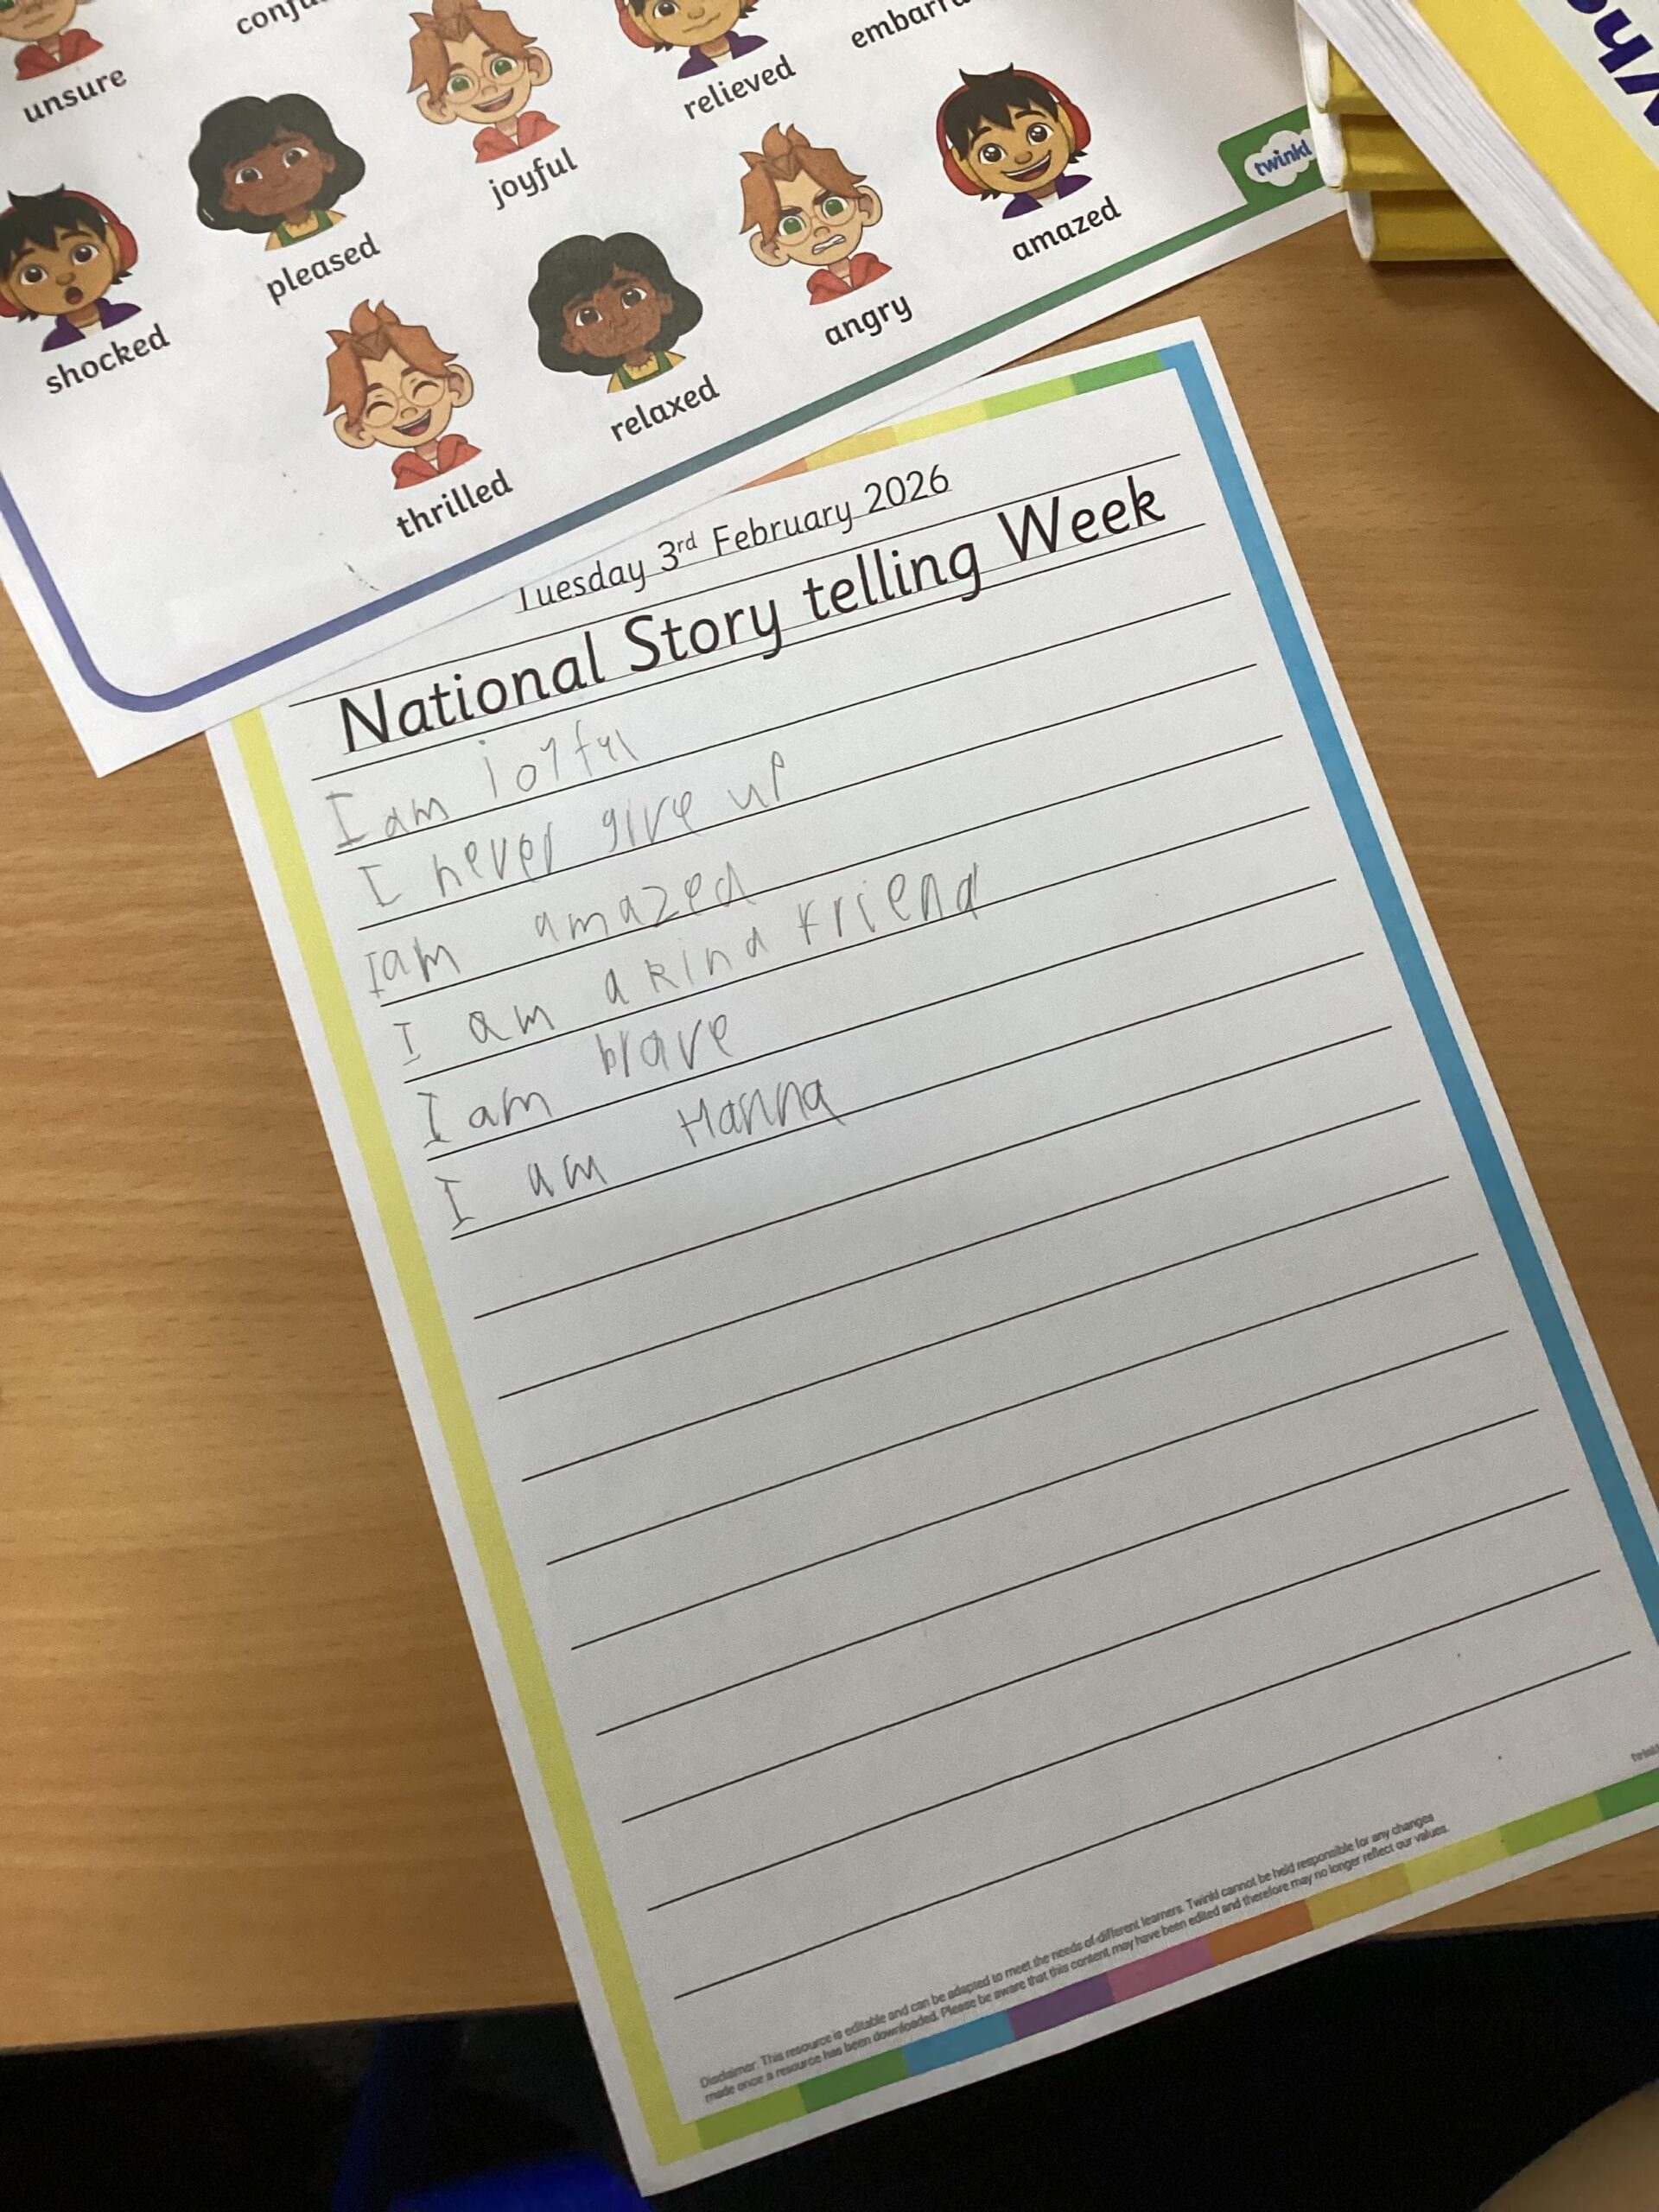 unsure
joyful
relieved
pleased
shocked
thrilled
relaxed
angry
amazed
twinkl
Tuesday 3rd February 2026
National Story telling Week
I am joyful
I never give up
I am amazed
I am a kind friend
I am brave
I am Hanna
Disclaimer: This resource is editable and can be adapted to meet the needs of different learners. Twinkl cannot be held responsible for any changes
made once a resource has been downloaded. Please be aware that this content may have been edited and therefore may no longer reflect our values.